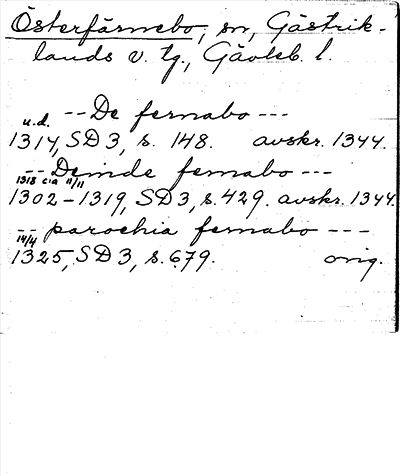 Österfärnebo, sn, Gästrik-
lands v. tg., Gävleb. l.
--De fernabo---
u.d.
1314, SD 3, s. 148. avskr. 1344.
--Deinde fernabo---
1318 c:a 11/11
1302-1319, SD 3, s. 429. avskr. 1344.
--parochia fernabo---
14/4
1325, SD 3, s. 679. orig.